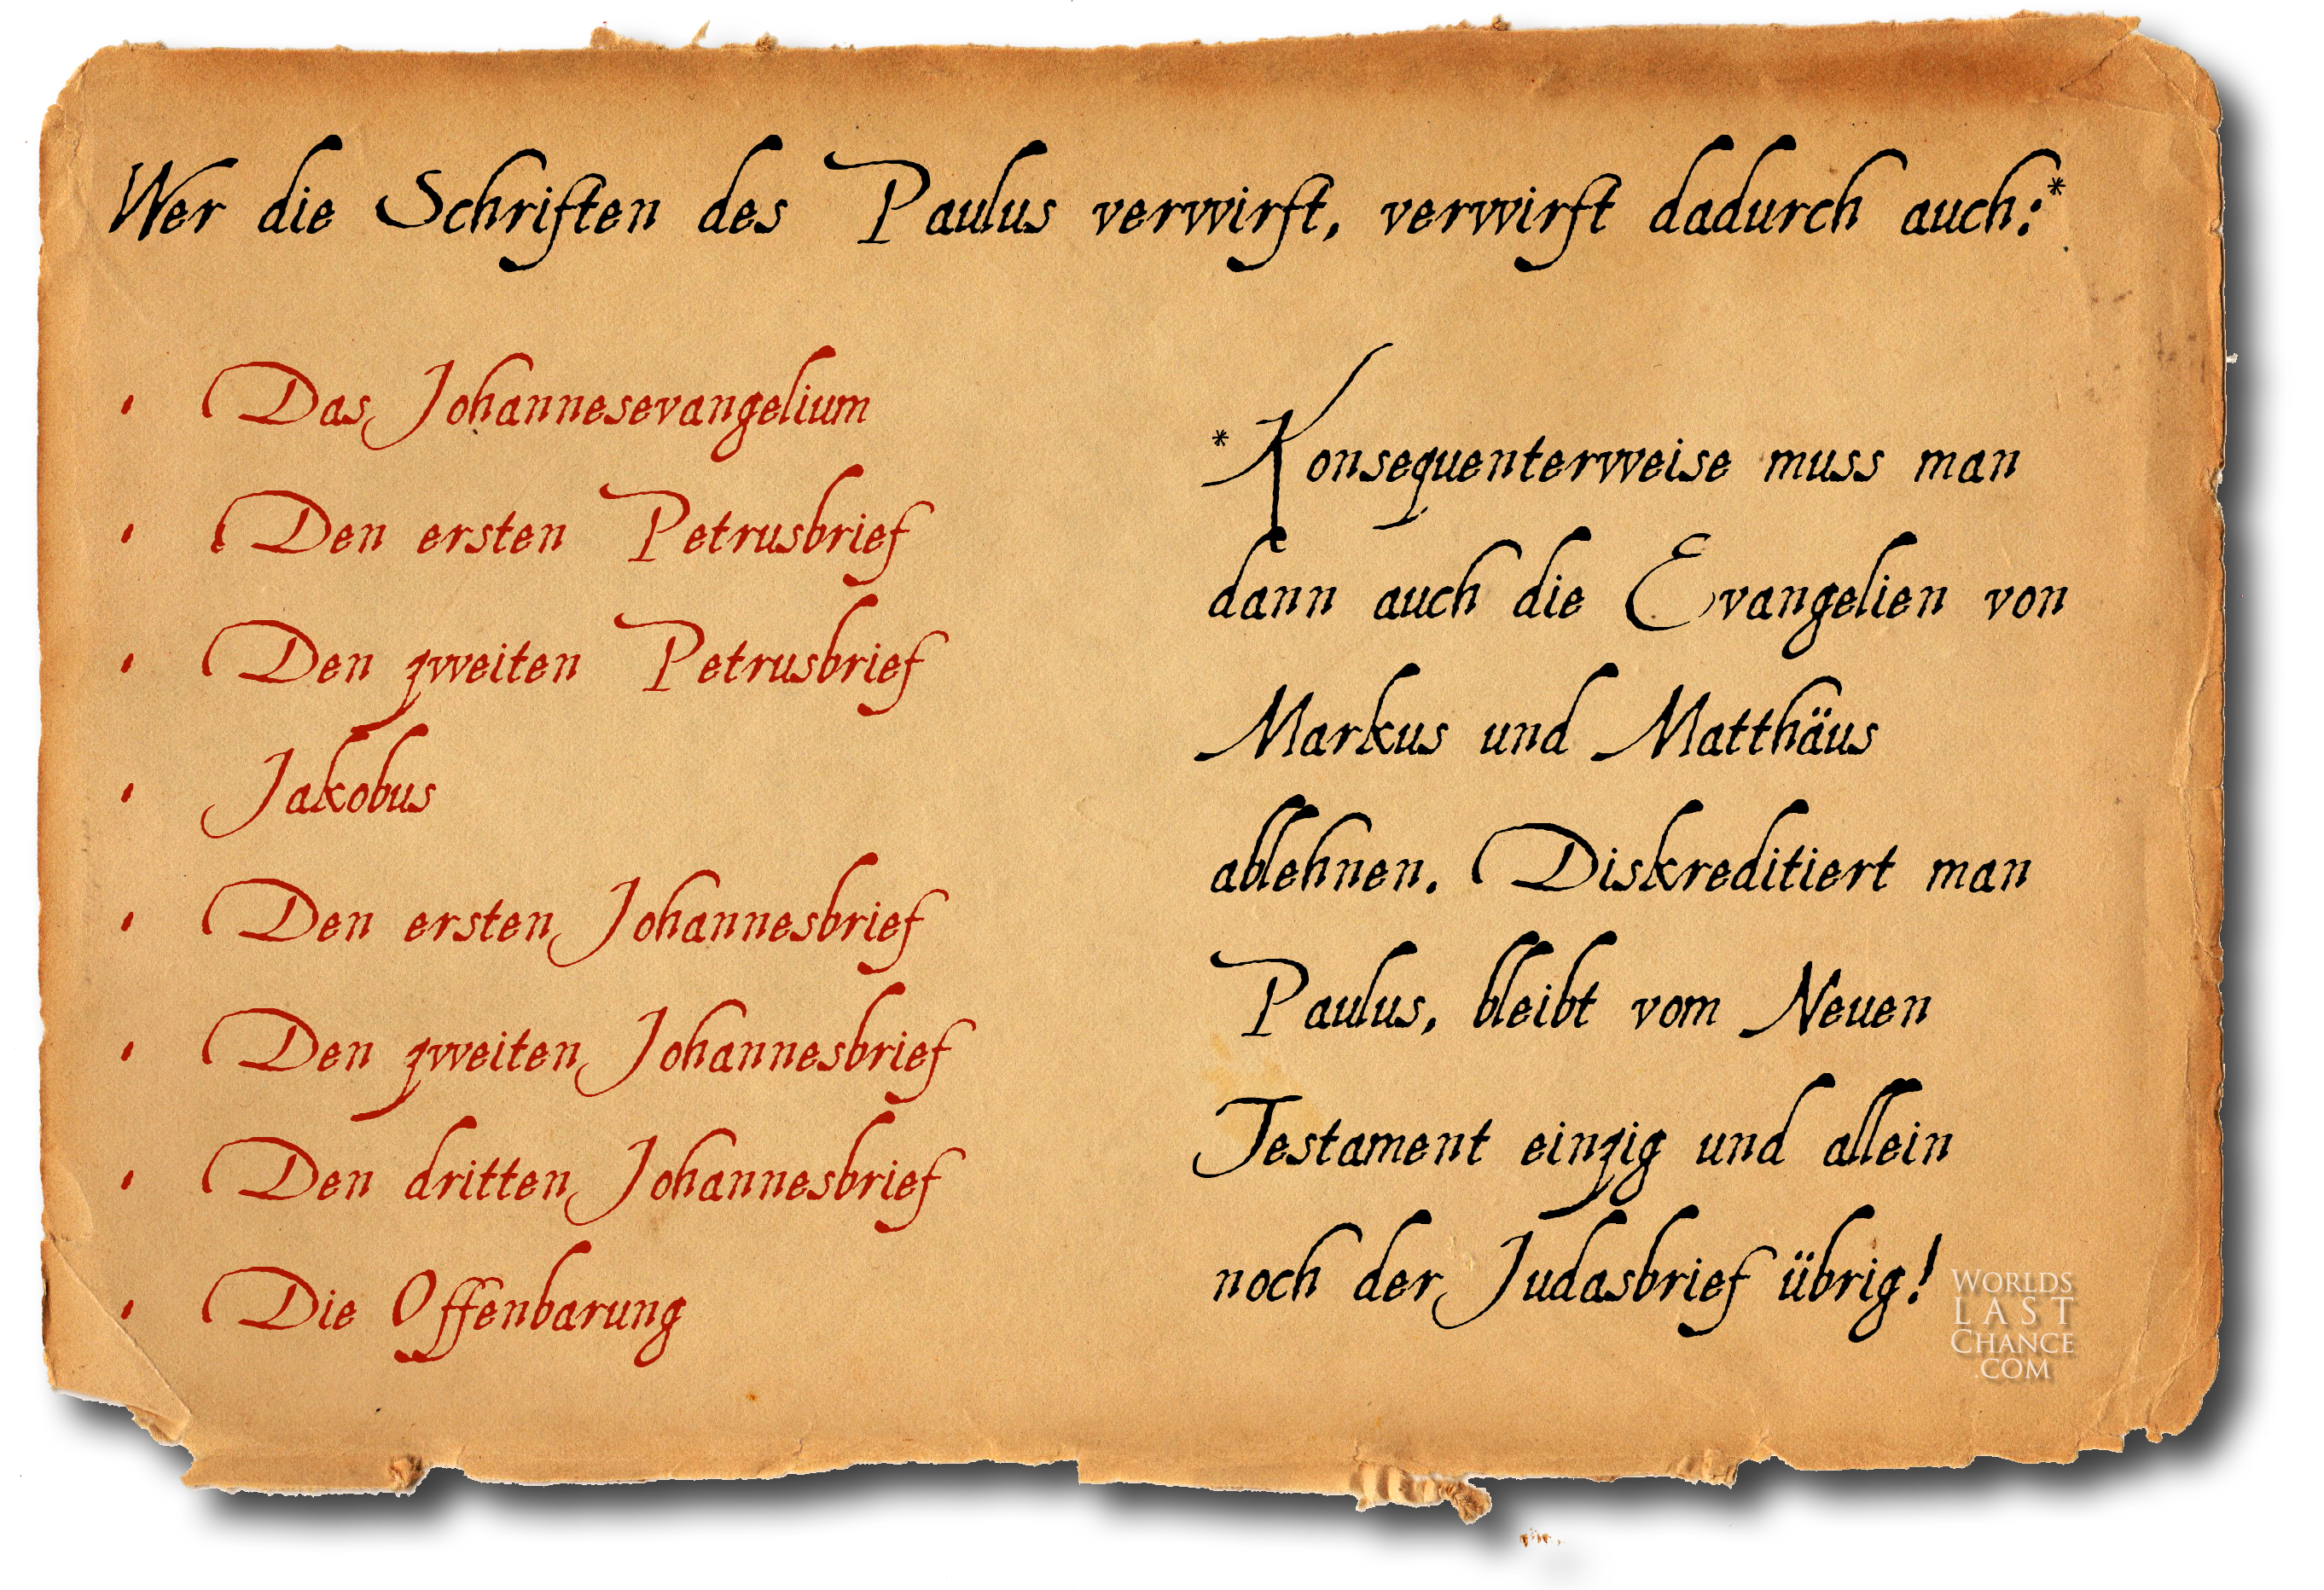 Wer die Schriften des Paulus verwirft, verwirft dadurch auch:*
• Das Johannesevangelium
• Den ersten Petrusbrief
• Den zweiten Petrusbrief
• Jakobus
• Den ersten Johannesbrief
• Den zweiten Johannesbrief
• Den dritten Johannesbrief
• Die Offenbarung
*Konsequenterweise muss man
dann auch die Evangelien von
Markus und Matthäus
ablehnen. Diskreditiert man
Paulus, bleibt vom Neuen
Testament einzig und allein
noch der Judasbrief übrig!
WORLDS
LAST
CHANCE
.COM